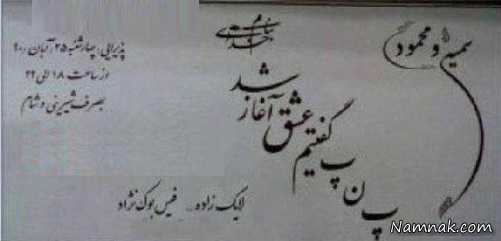 بنام خدا
سمیرا و محمود
پ ن پ گفتیم عشق آغاز شد
پذیرایی: چهارشنبه ۲۵ آبان ۹۰
از ساعت ۱۸ الی ۲۲
بصرف شیرینی و شام
لایک زاده ... فیس بوک نژاد
Namnak.com